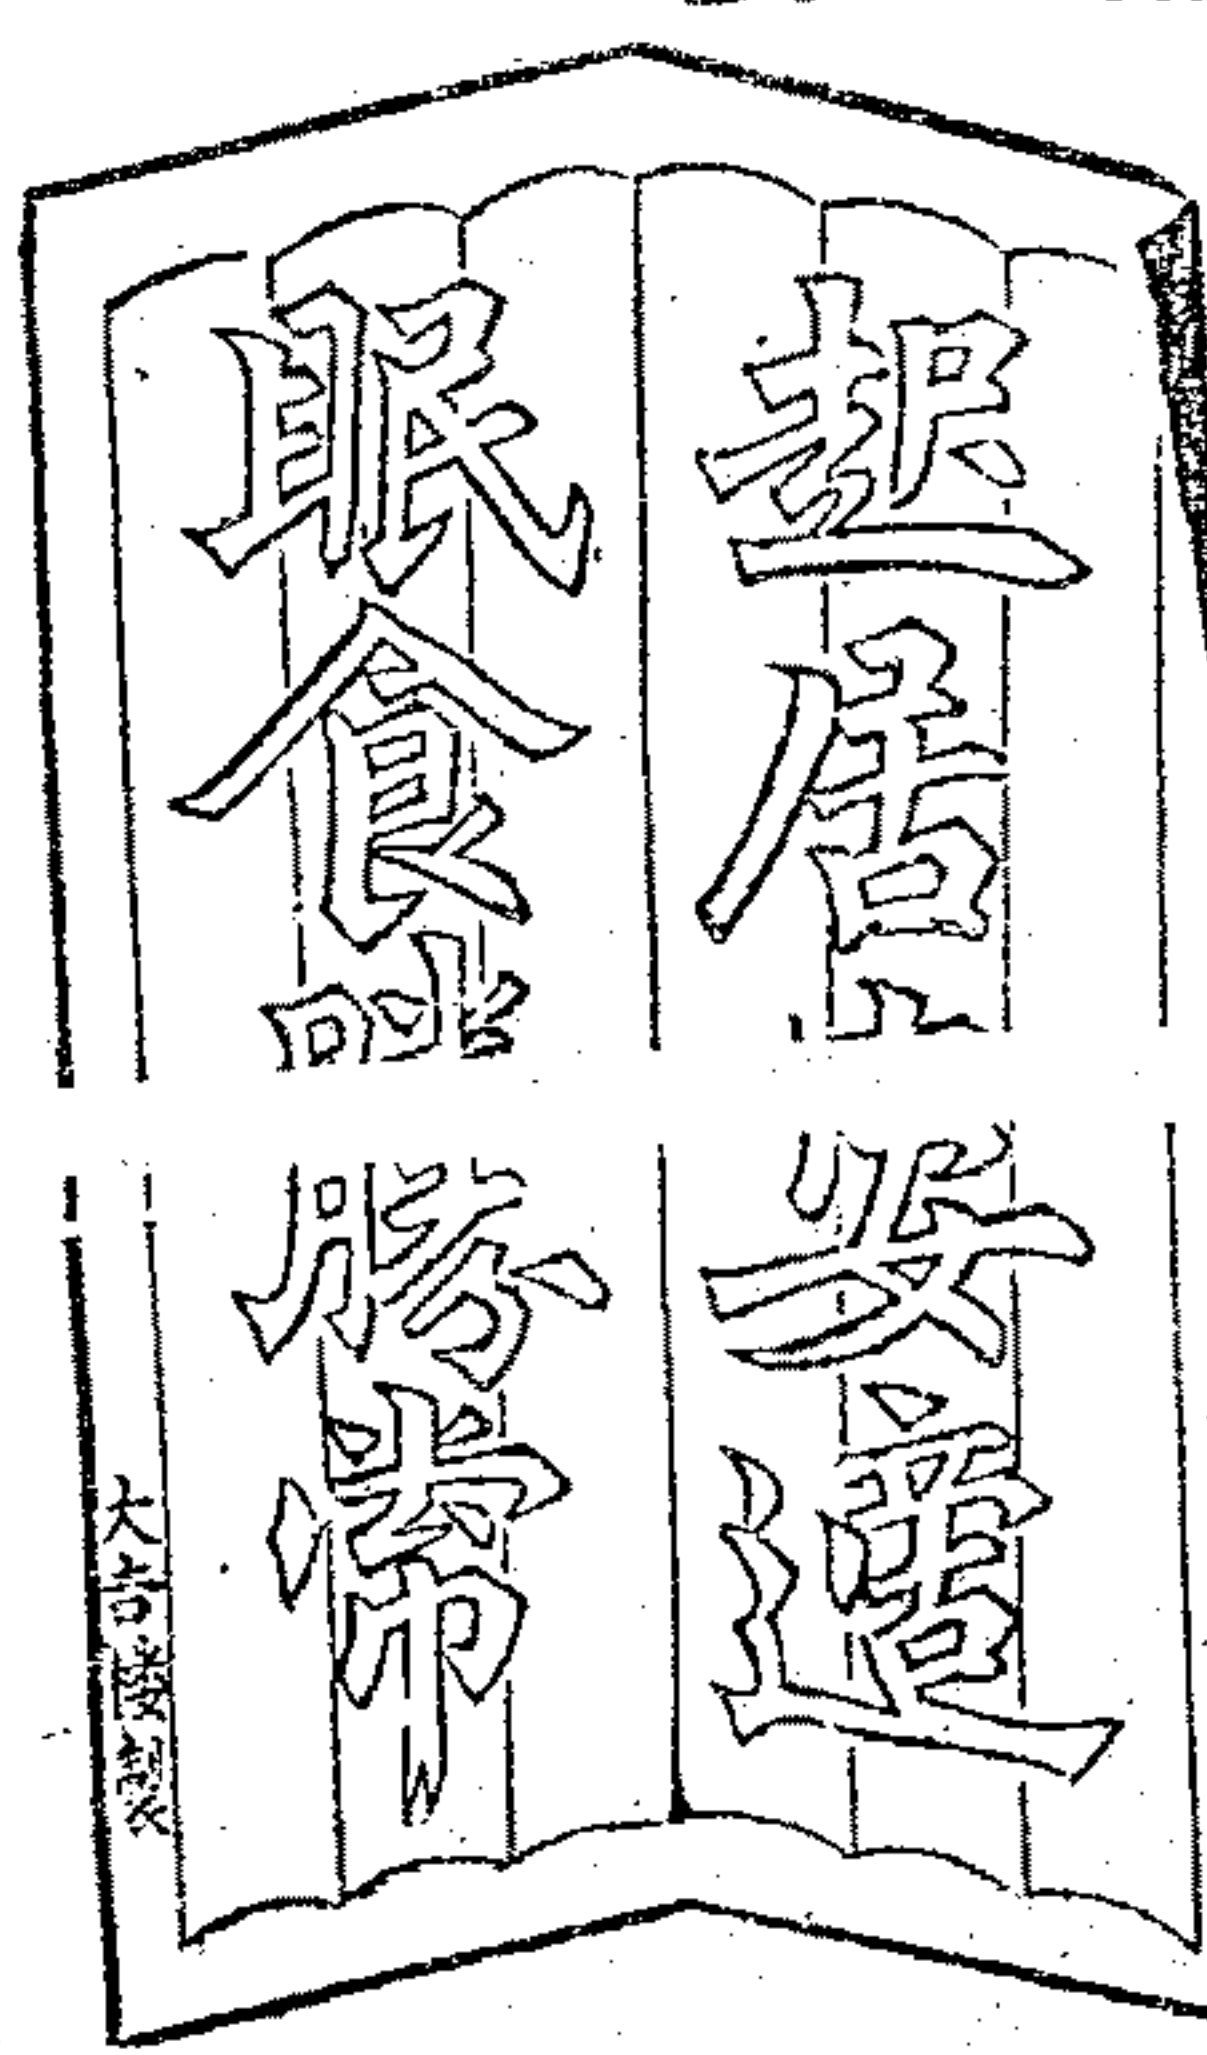 起居安適
眠食勝常
大吉製